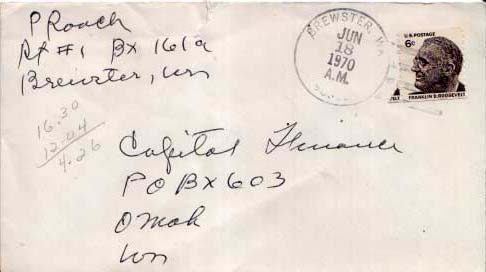 P Roach
Rt #1 Bx 161a
Brewster, Wn
16.30
12.04
4.26
BREWSTER, WA
JUN
18
1970
A.M.
U.S. POSTAGE
6¢
FRANKLIN D. ROOSEVELT
Capital Finance
PO BX 603
Omak
Wn